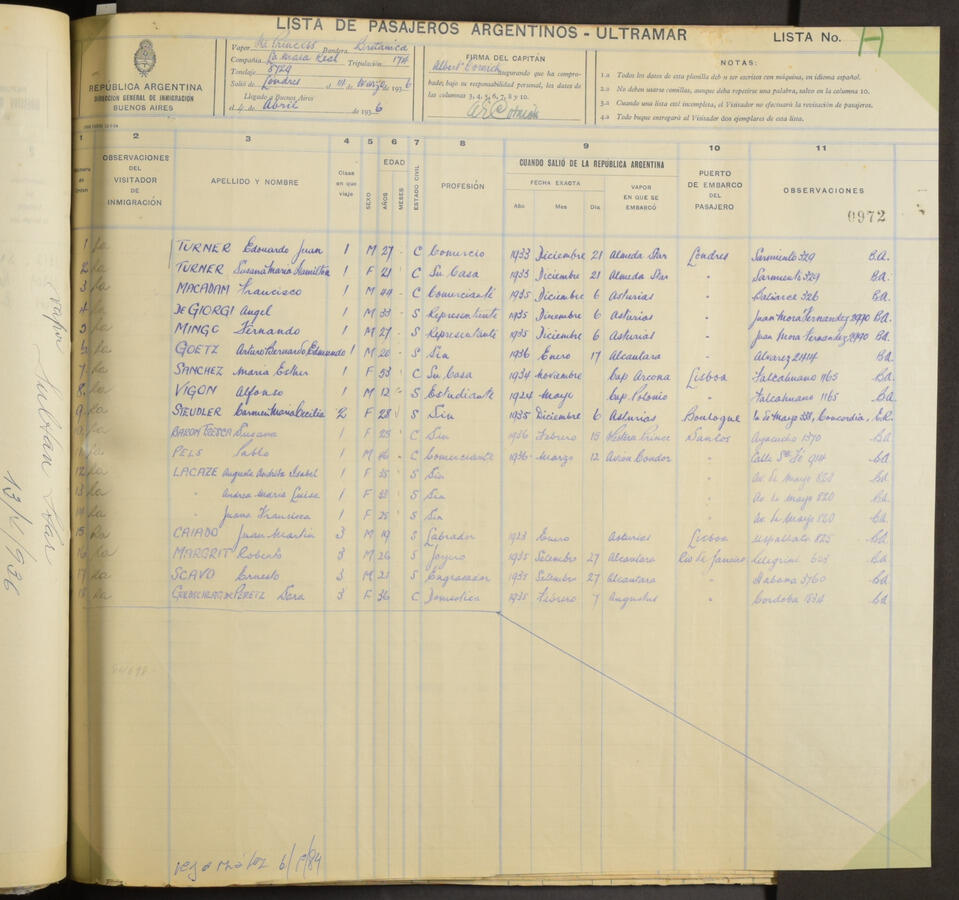 LISTA DE PASAJEROS ARGENTINOS - ULTRAMAR
LISTA No. A
REPÚBLICA ARGENTINA
DIRECCION GENERAL DE INMIGRACIÓN
BUENOS AIRES
Vapor Princess Bandera Britanica
Compañía Mala Real Tripulación 174
Tonelaje 8729
Salió de Londres Marzo de 1936
Llegado a Buenos Aires
el 4 de Abril de 1936
FIRMA DEL CAPITÁN
Albert asegurando que ha compro-
bado, bajo su responsabilidad personal, los datos de
las columnas 3, 4, 5, 6, 7, 8 y 10.
NOTAS:
1.a Todos los datos de esta planilla deben ser escritos con máquina, en idioma español.
2.a No deben usarse comillas, aunque deba repetirse una palabra, salvo en la columna 10.
3.a Cuando una lista esté incompleta, el Visitador no efectuará la revisación de pasajeros.
4.a Todo buque entregará al Visitador dos ejemplares de esta lista.
1 2 3 4 5 6 7 8 9 10 11
OBSERVACIONES DEL VISITADOR DE INMIGRACIÓN
APELLIDO Y NOMBRE
Clase en que viaje
SEXO
EDAD
AÑOS
MESES
ESTADO CIVIL
PROFESIÓN
CUANDO SALIÓ DE LA REPUBLICA ARGENTINA
FECHA EXACTA
Año Mes Día
VAPOR EN QUE SE EMBARCÓ
PUERTO DE EMBARCO DEL PASAJERO
OBSERVACIONES
0972
1 La TURNER Eduardo Juan 1 M 27 - C Comercio 1933 Diciembre 21 Almeda Star Londres Sarmiento 329 B.A.
2 La TURNER Susana Maria Hamilton 1 F 21 C Su Casa 1933 Diciembre 21 Almeda Star " Sarmiento 329 B.A.
3 La MACADAM Francisco 1 M 44 - C Comerciante 1935 Diciembre 6 Asturias " Balcarce 326 B.A.
4 La DE GIORGI Angel 1 M 33 - S Representante 1935 Diciembre 6 Asturias " Juan Mora Fernandez 2970 B.A.
5 La MINGO Fernando 1 M 27 - S Representante 1935 Diciembre 6 Asturias " Juan Mora Fernandez 2970 B.A.
6 La GOETZ Arturo Bernardo Edmundo 1 M 20 - S Sin 1936 Enero 17 Alcantara " Alvarez 2414 B.A.
7 La SANCHEZ Maria Esther 1 F 33 C Su Casa 1934 Noviembre Cap Arcona Lisboa Talcahuano 1165 B.A.
8 La VIGON Alfonso 1 M 12 - S Estudiante 1924 Mayo Cap Polonio " Talcahuano 1165 B.A.
9 La SIEUDLER Carmen Maria Cecilia 2 F 28 S Sin 1935 Diciembre 6 Asturias Boulogne Concordia, E.R.
La Susana 1 F 25 C Sin 1936 Febrero 15 Western Prince Santos Ayacucho 1370 B.A.
La PELS Pablo 1 M 46 - C Comerciante 1936 Marzo 12 " Calle Sta Fé 914 B.A.
12 La LACAZE Augusta Isabel 1 F 35 S Sin Av. de Mayo 820 B.A.
13 La " Andrea Maria Luisa 1 F 33 S Sin Av. de Mayo 820 B.A.
14 La " Juana Francisca 1 F 25 S Sin Av. de Mayo 820 B.A.
15 La CAIADO Juan Martin 3 M 19 S Labrador 1923 Enero Asturias Lisboa Uspallata 825 B.A.
16 La MARGRIT Roberto 3 M 26 S Joyero 1935 Setembre 27 Alcantara Rio de Janeiro Pelegrini B.A.
17 La SCAVO Ernesto 3 M 21 S Engrasador 1935 Setembre 27 Alcantara " Habana 3760 B.A.
18 La PERETZ Sara 3 F 36 C Domestica 1935 Febrero 7 Augustus " Cordoba 1534 B.A.